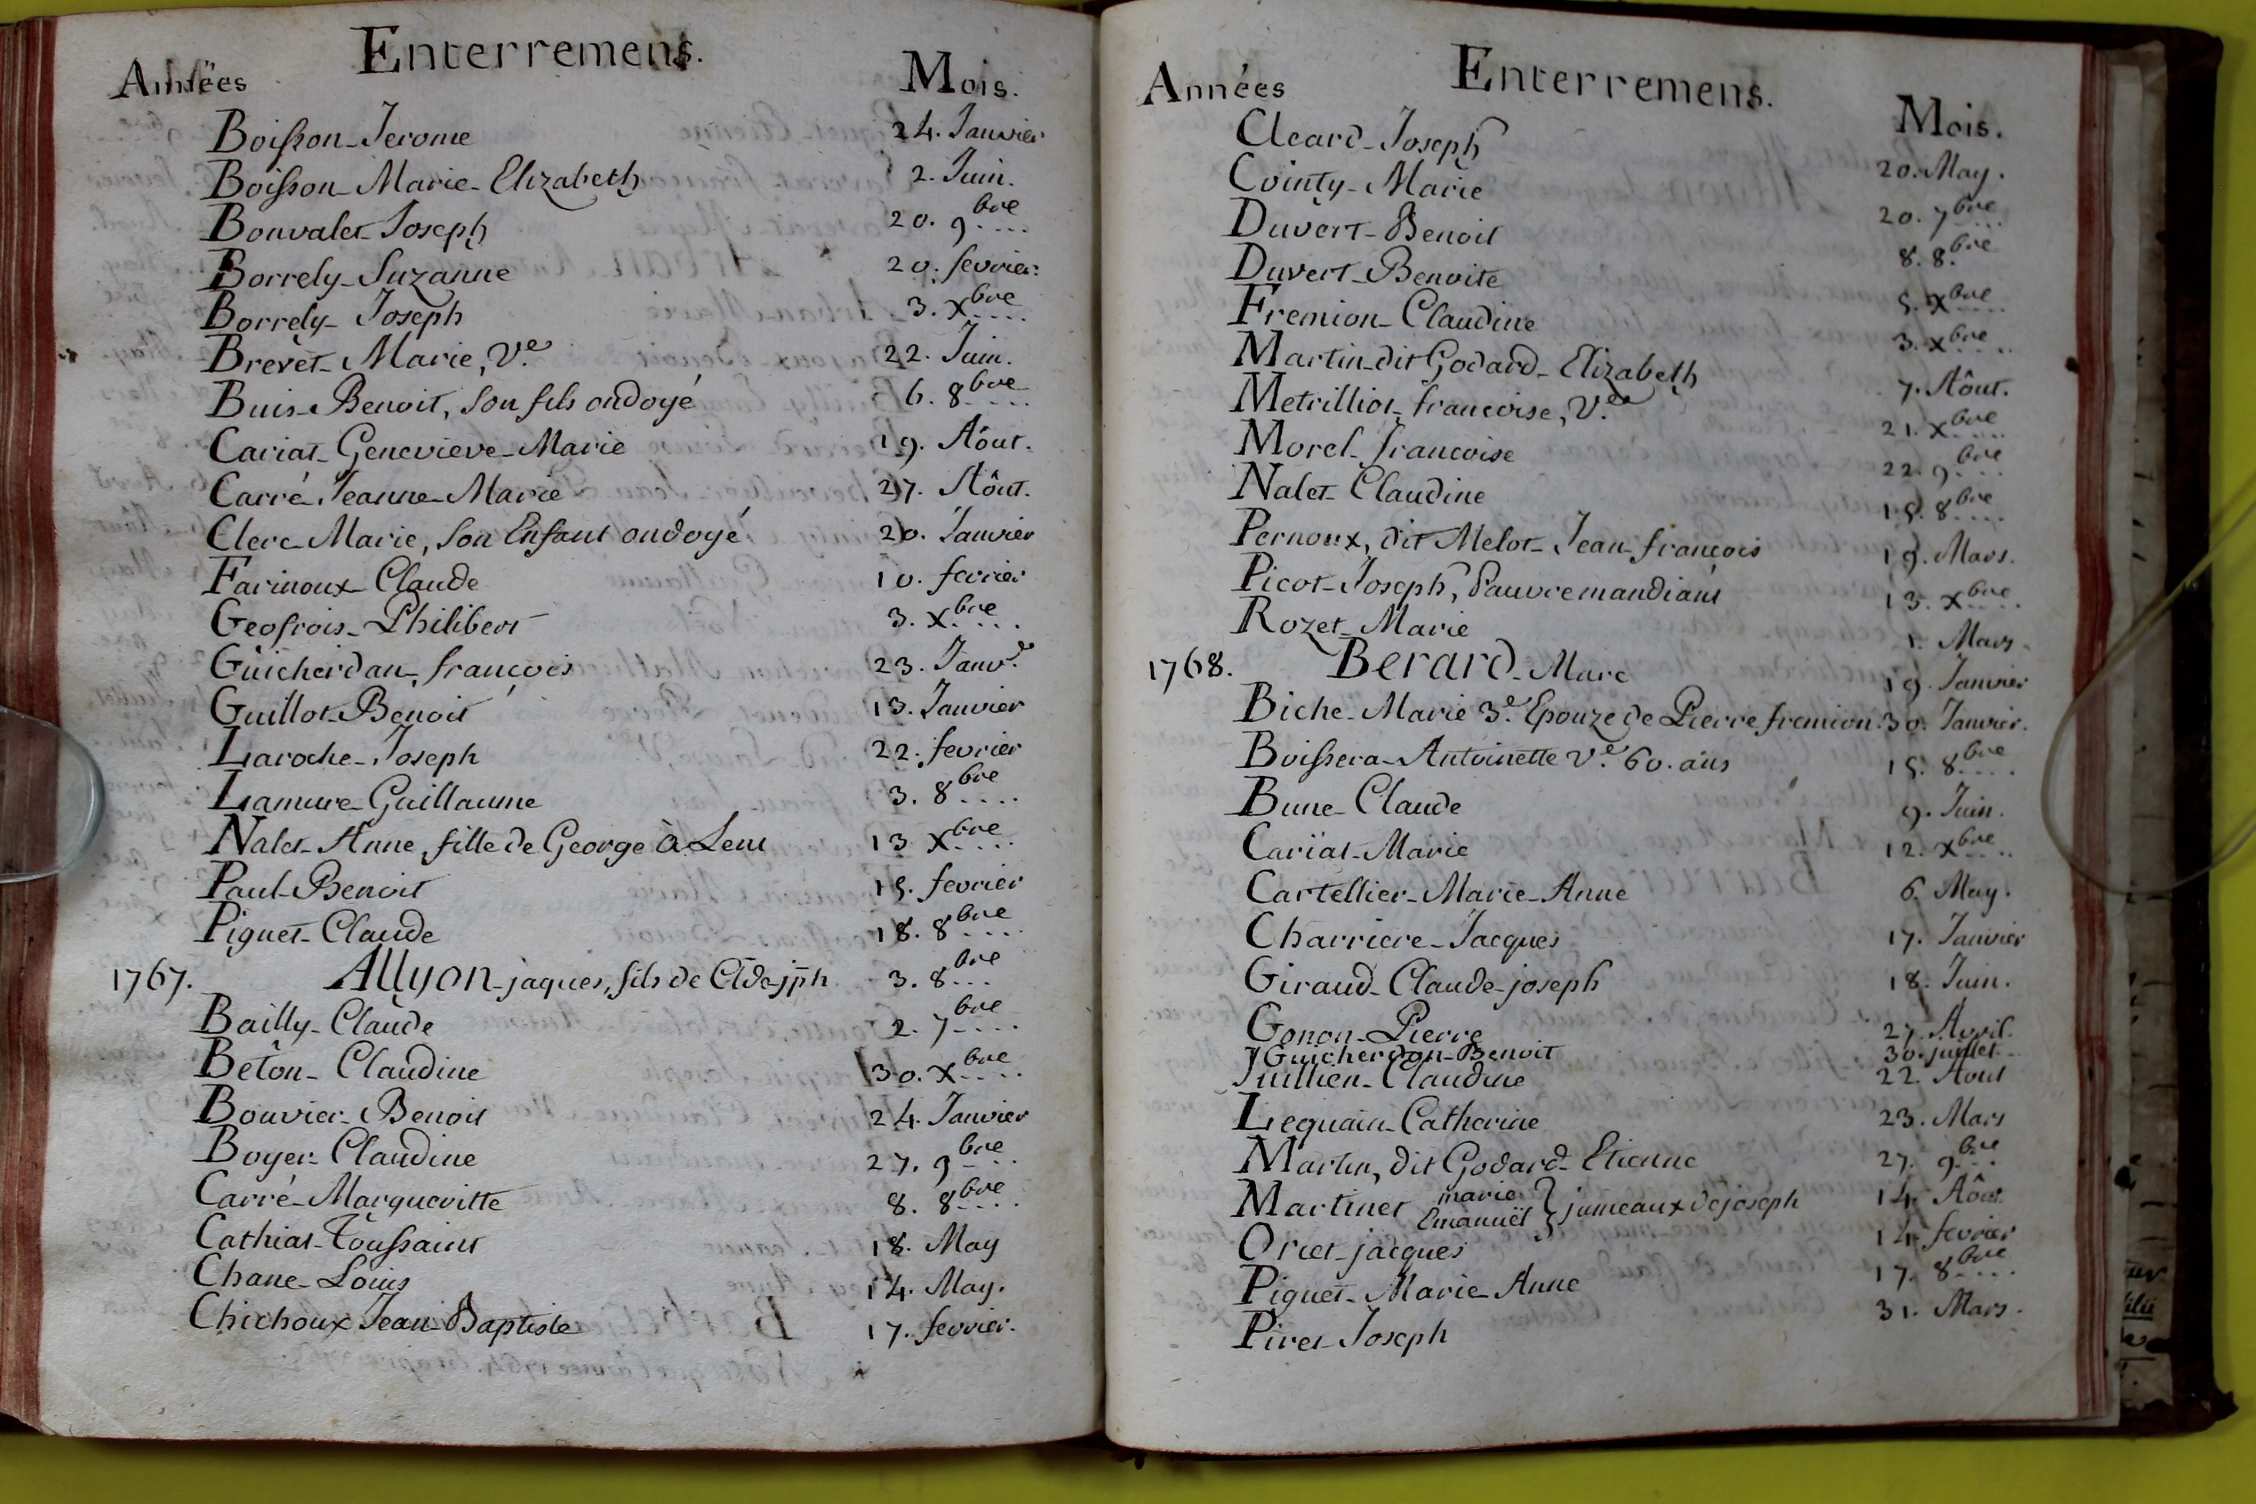 Enterremens.
Années Mois.
Boisson_Jerome 24. Janvier
Boisson_Marie_Elizabeth 2. Juin.
Bonvalet_Joseph 20. 9bre....
Borrely_Suzanne 20. fevrier.
Borrely_Joseph 3. Xbre....
Brevet_Marie, Ve 22. Juin.
Buis_Benoit, Son fils ondoyé 6. 8bre....
Cariat_Genevieve_Marie 19. Aôut.
Carré_Jeanne_Marie 27. Aôut.
Clerc_Marie, Son Enfant ondoyé 20. Janvier
Farinoux_Claude 10. fevrier
Geofrois_Philibert 3. X.bre....
Guicherdan_françois 23. Janvr
Guillot_Benoit 13. Janvier
Laroche_Joseph 22. fevrier
Lamure_Guillaume 3. 8bre....
Nalet_Anne, fille de George à Lent 13 Xbre....
Paul_Benoit 15. fevrier
Piquet_Claude 18. 8bre....
1767. Allyon_jaques, fils de Cl̄de jp̄h 3. 8bre...
Bailly_Claude 2. 7bre....
Beton_Claudine 30. Xbre....
Bouvier_Benoit 24. Janvier
Boyer_Claudine 27. 9bre...
Carré_Margueritte 8. 8bre....
Cathiat_Toussaint 18. May
Chane_Louis 14. May.
Chichoux Jean_Baptiste 17. fevrier.
Enterremens.
Années Mois.
Cleard_Joseph 20. May.
Cointy_Marie 20. 7bre...
Duvert_Benoit 8. 8.bre
Duvert_Benoite 5. Xbre....
Fremion_Claudine 3. Xbre....
Martin_dit Godard_Elizabeth 7. Aôut.
Metrilliot_francoise, Ve 21. Xbre....
Morel_francoise 22. 9bre...
Nalet_Claudine 15. 8bre....
Pernoux, dit Melot_Jean_françois 19. Mars.
Picot_Joseph, Pauvre mandiant 13. Xbre....
Rozet_Marie 1. Mars.
1768. Berard_Marc 19. Janvier
Biche_Marie 3e Epouze de Pierre fremion. 30. Janvier.
Boissera_Antoinette Ve 60. ans 15. 8bre....
Bune_Claude 9. Juin.
Cariat_Marie 12. Xbre....
Cartellier_Marie_Anne 6. May.
Charriere_Jacques 17. Janvier
Giraud_Claude_joseph 18. Juin.
Gonon_Pierre 27. Avril.
Guicherdon_Benoit 30. juillet
Juillien_Claudine 22. Aout
Lequain_Catherine 23. Mars
Martin, dit Godard_Etienne 27. 9bre...
Martinet marie Emanuel } jumeaux de joseph 14. Aôut.
Oriet_jacques 14. fevrier
Piquet_Marie_Anne 17. 8bre....
Piret_Joseph 31. Mars.